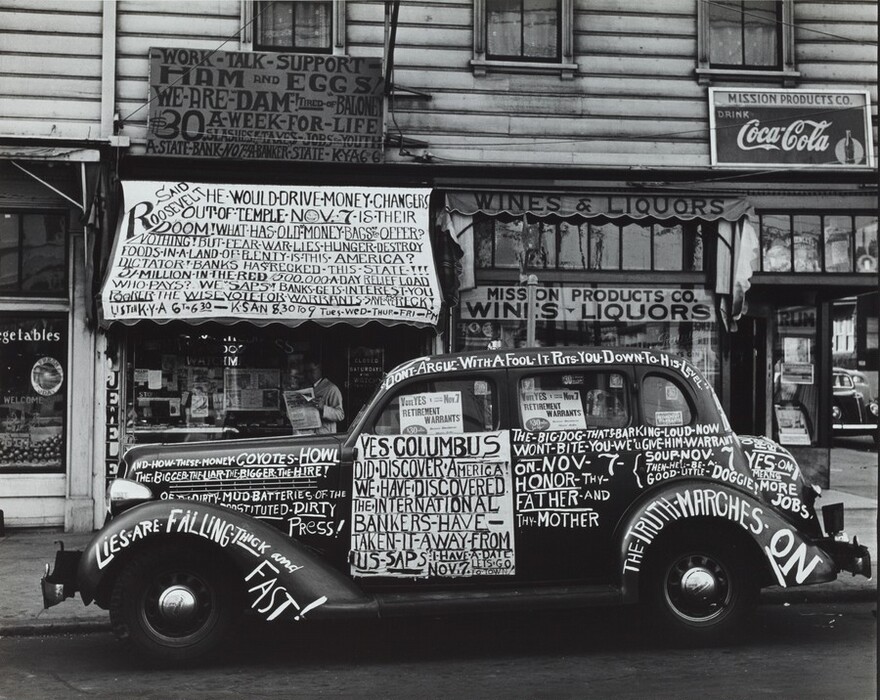 WORK-TALK-SUPPORT-
HAM AND EGGS
WE-ARE-DAM-TIRED-OF BALONEY
$30 A-WEEK-FOR-LIFE
SLASHES-TAXES-JOBS-YOUTH
A-STATE-BANK-NOT-A-BANKER-STATE-KYA 6-6
MISSION PRODUCTS CO.
DRINK
Coca-Cola
SAID
ROOSEVELT HE-WOULD-DRIVE-MONEY-CHANGERS
OUT-OF-TEMPLE-NOV.7-IS-THEIR
DOOM! WHAT-HAS-OLD-MONEY-BAGS-TO-OFFER?
NOTHING! BUT-FEAR-WAR-LIES-HUNGER-DESTROY
FOODS-IN-A-LAND-OF-PLENTY-IS-THIS-AMERICA?
DICTATOR! BANKS-HAS-ROCKED-THIS-STATE!!!
MILLION-IN-THE-RED-200.000-A-DAY-RELIEF LOAD
WHO-PAYS? WE"SAPS"! BANKS-GETS-INTEREST-YOU
THE WISE VOTE FOR WARRANTS
K-Y-A 6-6:30 — KSAN 8:30 TO 9 TUES-WED-THUR-FRI-PM
WINES & LIQUORS
MISSION PRODUCTS CO.
WINES & LIQUORS
egetables
WELCOME
JEWELE
RUM
DON'T-ARGUE-WITH-A-FOOL-IT PUTS-YOU-DOWN-TO-HIS-LEVEL"
Vote YES on Nov. 7
RETIREMENT
WARRANTS
Vote YES on Nov. 7
RETIREMENT
WARRANTS
AND-HOW-THESE-MONEY COYOTES-HOWL
THE-BIGGER-THE-LIAR-THE-BIGGER-THE HIRE!
DIRTY-MUD BATTERIES OF THE
PROSTITUTED-DIRTY
PRESS!
LIES-ARE-FALLING-THICK and
FAST!
YES-COLUMBUS
DID-DISCOVER-AMERICA
WE-HAVE-DISCOVERED
THE-INTERNATIONAL
BANKERS-HAVE—
TAKEN-IT-AWAY-FROM
US-SAPS-I-HAVE-A-DATE
NOV.7 LET'S-GO
THE-BIG-DOG-THAT'S-BARKING-LOUD-NOW
WONT-BITE-YOU-WE'LL GIVE-HIM-WARRANT
SOUP-NOV.7
THEN-HE'LL-BE-A
GOOD-LITTLE-DOGGIE
ON-NOV-7-
HONOR-THY-
FATHER-AND
THY-MOTHER
YES-ON-7
MEANS
MORE
JOBS
THE-TRUTH-MARCHES-ON